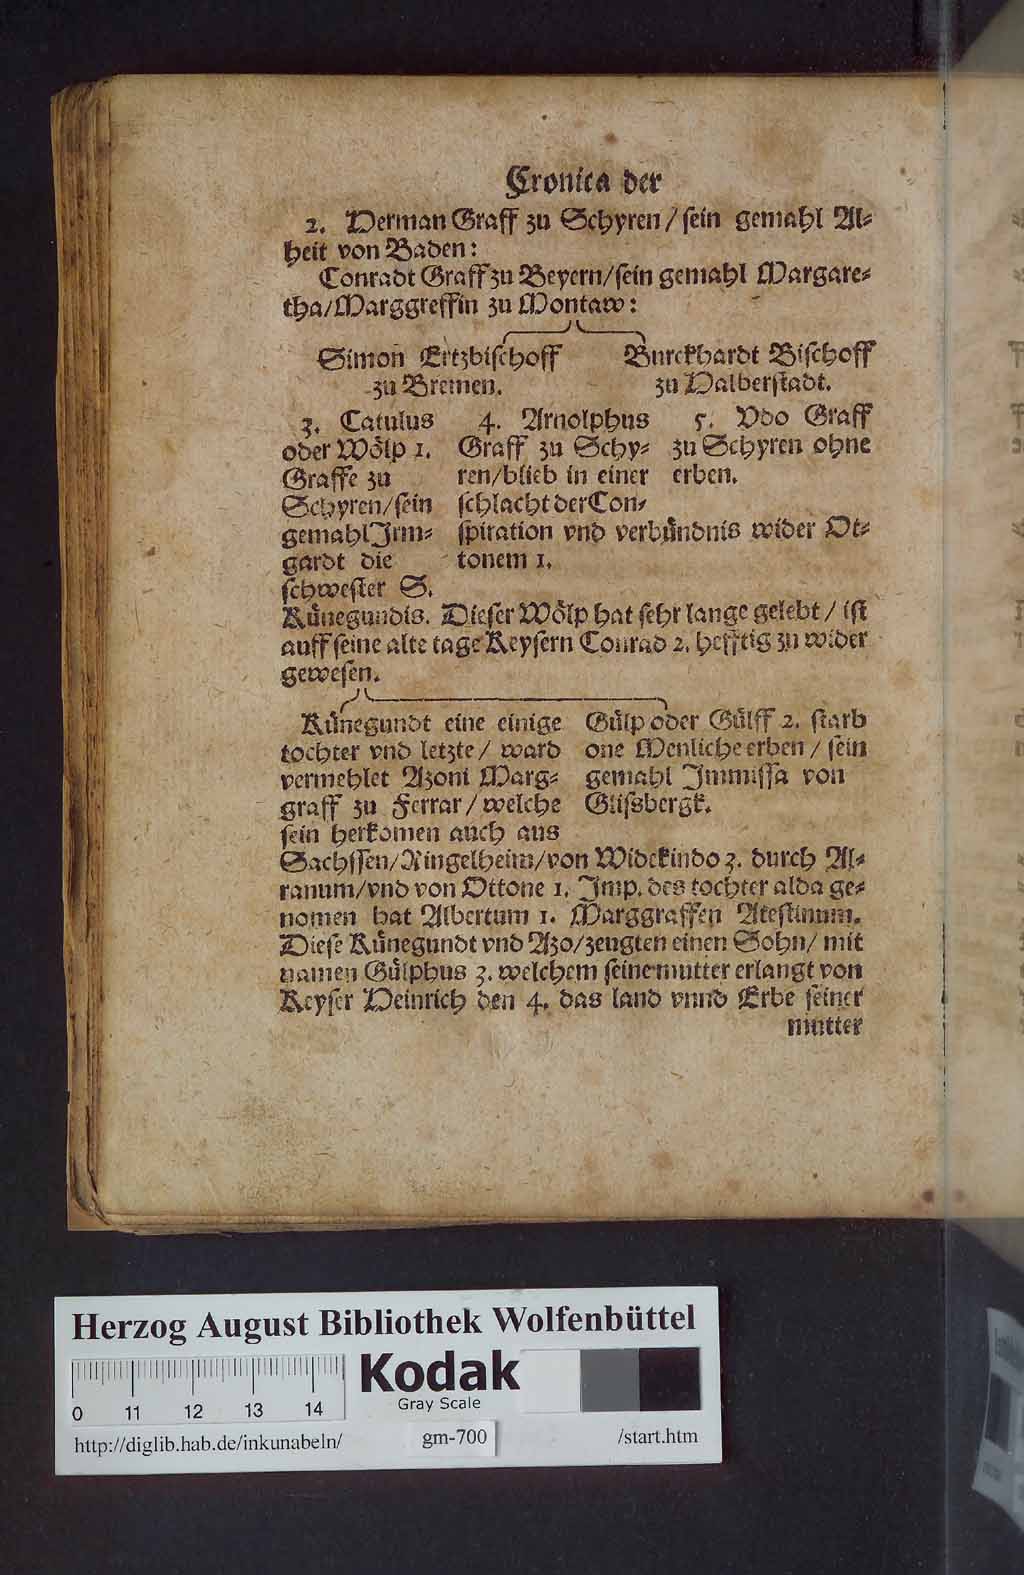 Cronica der
2. Herman Graff zu Schyren / sein gemahl Al⸗
heit von Baden:
Conradt Graff zu Beyern/sein gemahl Margare⸗
tha/Marggreffin zu Montaw:
Simon Ertzbischoff
zu Bremen.
Burckhardt Bischoff
zu Halberstadt.
3. Catulus
oder Wölp 1.
Graffe zu
Schyren/sein
gemahl Irm⸗
gardt die
schwester S.
4. Arnolphus
Graff zu Schy⸗
ren/blieb in einer
schlacht der Con⸗
spiration vnd verbündnis wider Ot⸗
tonem 1.
5. Vdo Graff
zu Schyren ohne
erben.
Künegundis. Dieser Wölp hat sehr lange gelebt / ist
auff seine alte tage Keysern Conrad 2. hefftig zu wider
gewesen.
Künegundt eine einige
tochter vnd letzte / ward
vermehlet Azoni Marg⸗
graff zu Ferrar / welche
sein herkomen auch aus
Gülp oder Gülff 2. starb
one Menliche erben / sein
gemahl Immissa von
Glissbergk.
Sachssen/Ringelheim/von Widekindo 3. durch Al⸗
ranum/vnd von Ottone 1. Imp. des tochter alda ge⸗
nomen hat Albertum 1. Marggraffen Atestinum.
Diese Künegundt vnd Azo/zeugten einen Sohn/ mit
namen Gülphus 3. welchem seine mutter erlangt von
Keyser Heinrich den 4. das land vnnd Erbe seiner
mutter
Herzog August Bibliothek Wolfenbüttel
Kodak
Gray Scale
0 11 12 13 14
http://diglib.hab.de/inkunabeln/ gm-700 /start.htm